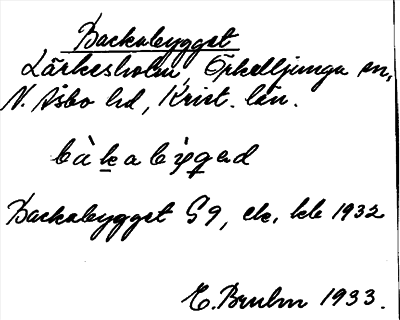 Backabygget
Lärkesholm, Örkelljunga sn,
N. Åsbo hd, Krist. län.
Backabygget S9, ek. kb 1932
E. Bruhn 1933.